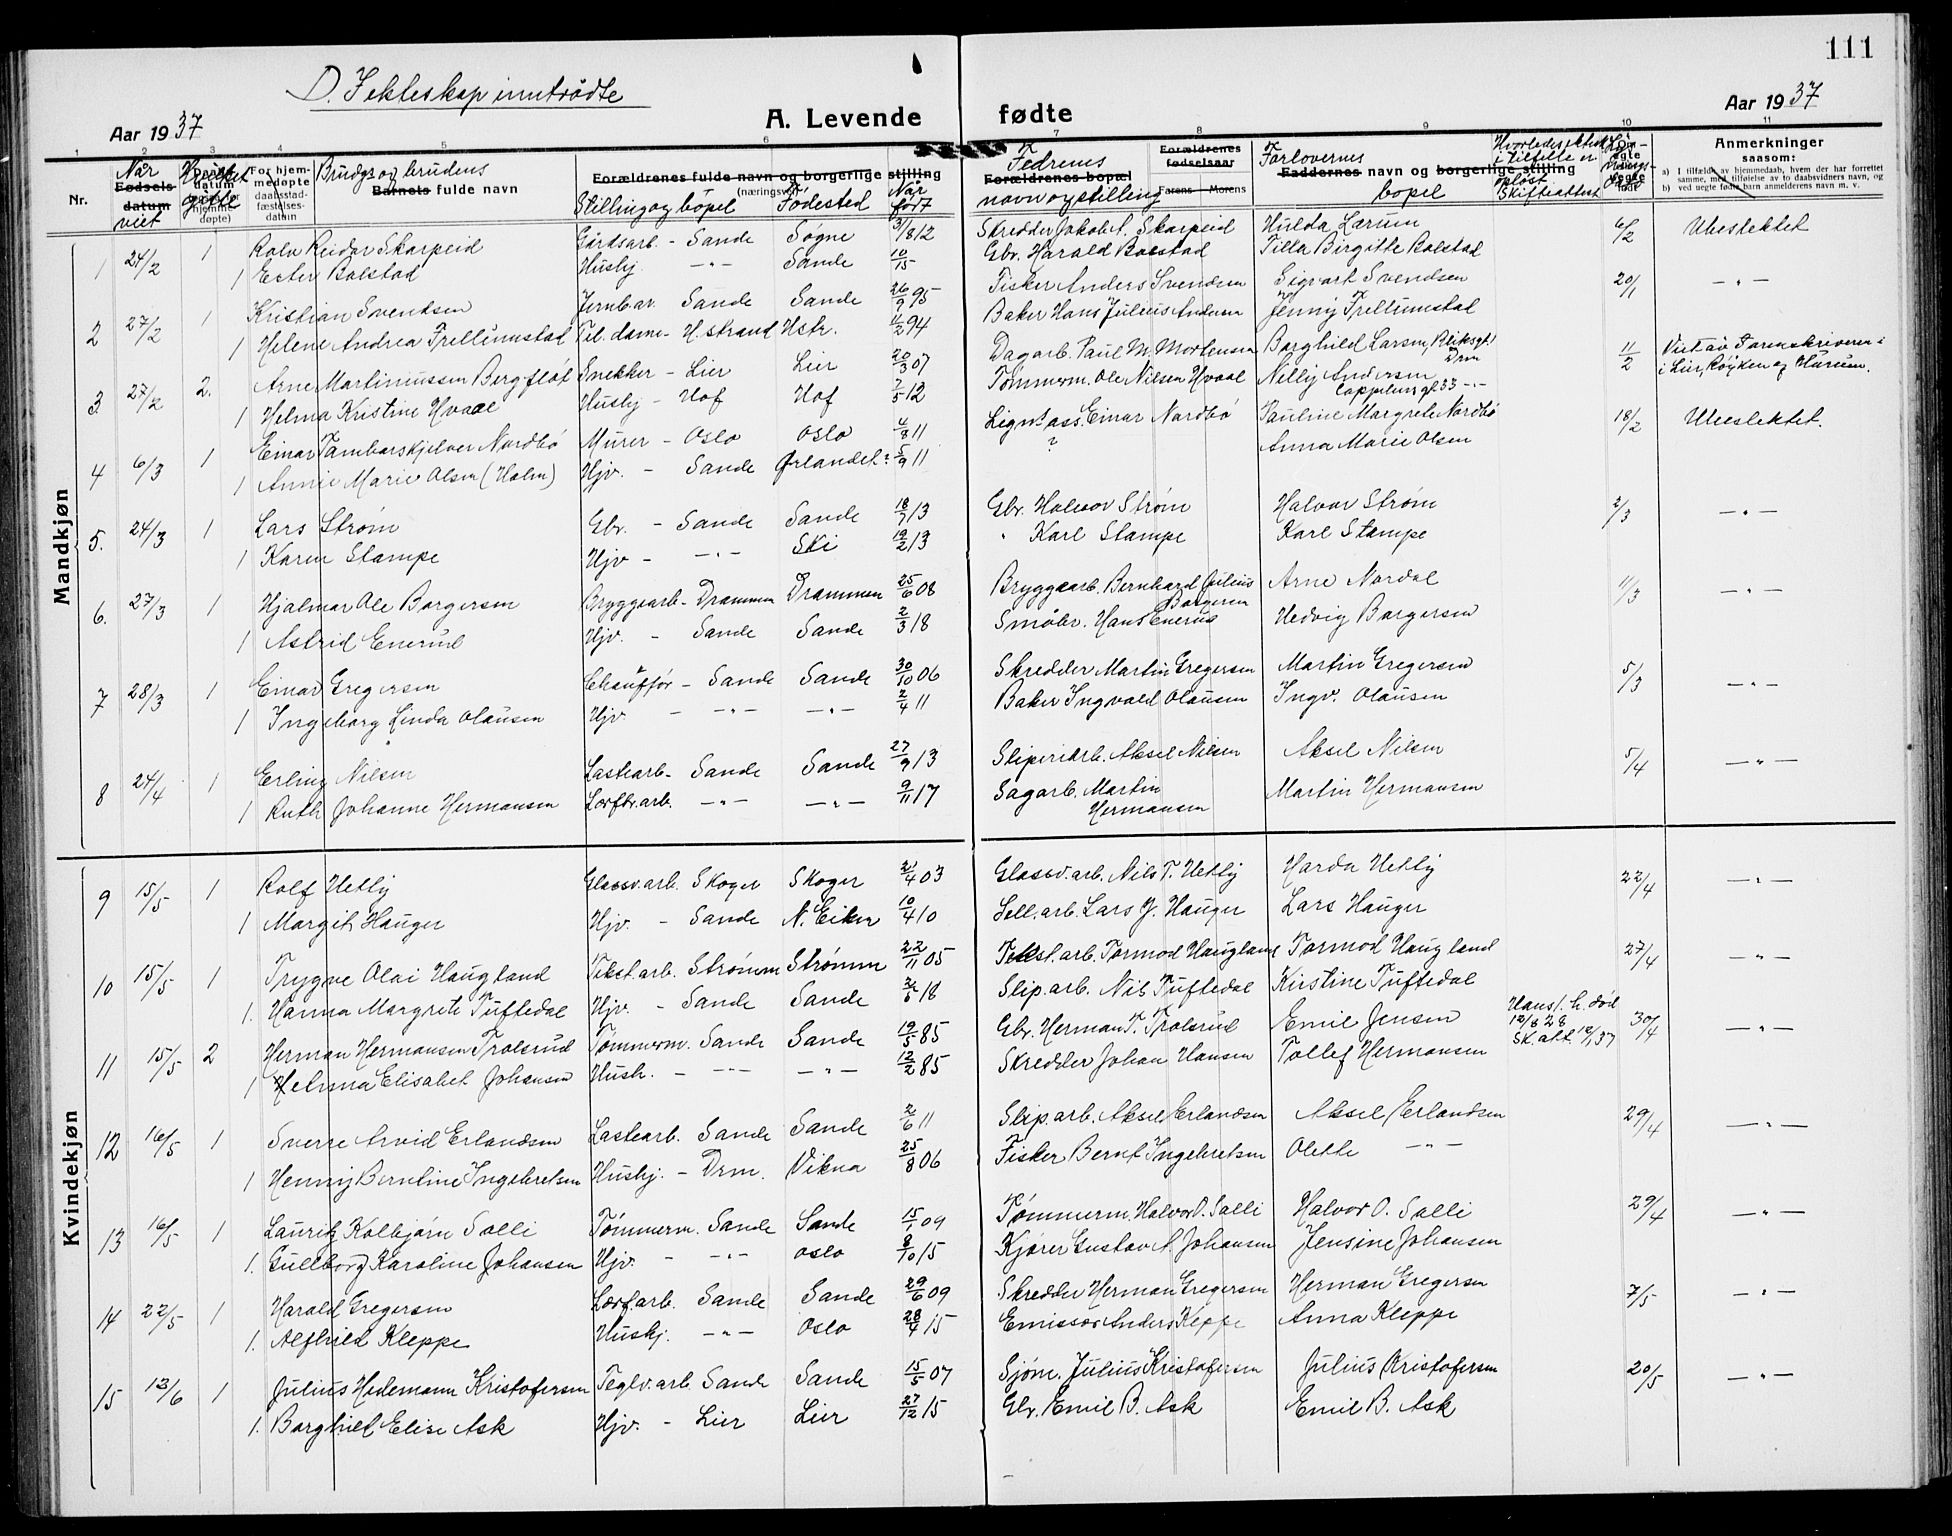 111
D. I ekteskap inntrådte
Aar 1937
A. Levende fødte
Aar 1937
1 2 3 4 5 6 7 8 9 10 11
Nr.
Når Fødsels datum viet
For hjemmedøpte daabsstadfæstelsesdatum
Brudgs og brudens Barnets fulde navn
Forældrenes fulde navn og borgerlige stilling (næringsvei)
Stilling og bopel Fødested Når født
Fedrenes Forældrenes bopæl navn og stilling
Forældrenes fødselsaar Farens Morens
Forlovernes Faddernes navn og borgerlige stilling bopel
Anmerkninger saasom:
a) I tilfælde av hjemmedaab, hvem der har forrettet samme, med tilføielse av to daabsvidners navn, og
b) ved uegte fødte barn anmelderens navn m. v.
Mandkjøn
1 24/2 1 Rolv Reidar Skarpeid Gårdsarb. - Sande Søgne 3/8 12 Skredder Jakob A. Skarpeid Hulda Larum 6/2 Ubeslektet
1 Ester Bolstad Hushj. -"- Sande 10/ 15 Gbr. Harald Bolstad Tilla Birgitte Bolstad
2 27/2 1 Kristian Svendsen Jernbar. Sande Sande 26/9 95 Fisker Anders Svendsen Sigvart Svendsen 20/1 -"-
1 Helene Andrea Frellumstad Til. dame - H.strand Hstr. 11/2 94 Baker Hans Julius Andersen Jenny Frellumstad
3 27/2 2. Arne Martiniussen Bergfløt Snekker - Lier Lier 20/3 07 Dagarb. Paul M. Mortensen Borghild Larsen, Drm 11/2 Viet av Sorenskriveren i i Lier, Røyken og Hurum.
1 Helma Kristine Hvaal Hushj - Hof Hof 7/5 12 Tømmerm. Ole Nilsen Hvaal Nelly Andersen Cappelensgt 33 -"-
4 6/3 1 Einar Tambarskjelver Nordbø Murer - Oslo Oslo 4/8 11 Lign.ass. Einar Nordbø Pauline Margrete Nordbø 18/2 Ubeslektet.
1 Annie Marie Olsen (Holm) Hjv. - Sande Ørlandet? 5/9 11 ? Anna Marie Olsen
5. 24/3 1 Lars Strøm Gbr. - Sande Sande 18/7 13 Gbr. Halvor Strøm Halvor Strøm 2/3 -"-
1 Karen Stampe Hjv - -"- Ski 19/2 13 " Karl Stampe Karl Stampe
6. 27/3 1 Hjalmar Ole Borgersen Bryggearb - Drammen Drammen 25/6 08 Bryggearb. Bernhard Julius Borgersen Arne Nordal 11/3 -"-
1 Astrid Enerud Hjv. - Sande Sande 2/3 18 Småbr. Hans Enerud Hedvig Borgersen
7 28/3 1 Einar Gregersen Chauffør - Sande Sande 30/10 06 Skredder Martin Gregersen Martin Gregersen 5/3 -"-
1 Ingeborg Linda Olausen Hjv - -"- -"- 2/4 11 Baker Ingvald Olausen Ingv. Olausen
8 24/4 1 Erling Nilsen Lastearb - Sande Sande 27/9 13 Sliperiarb. Aksel Nilsen Aksel Nilsen 5/4 -"-
1 Ruth Johanne Hermansen Lærfbr.arb. -"- -"- 9/11 17 Sagarb. Martin Hermansen Martin Hermansen
Kvindekjøn
9 15/5 1 Rolf Hetly Glassv.arb. Skoger Skoger 2/4 03 Glassv.arb. Nils T. Hetly Harda Hetly 22/4 -"-
1 Margit Hauger Hjv. - Sande N. Eiker 10/4 10 Sell.arb. Lars J. Hauger Lars Hauger
10 15/5 1 Trygve Olai Haugland Tekst.arb. Strømm Strømm 22/11 05 Tekst.arb. Tormod Haugland Tormod Haugland 27/4 -"-
1. Hanna Margrete Tuftedal Hjv. - Sande Sande 18 Slip.arb. Nils Tuftedal Kirstine Tuftedal
11 15/5 2 Herman Hermansen Trolsrud Tømmerm. Sande Sande 19/5 85 Gbr. Herman T. Trolsrud Emil Jensen Hans f. h. død 12/8 28 Sk.att 12/1 37 30/4 -"-
1 Helma Elisabet Johansen Hush. - -"- -"- 12/2 85 Skredder Johan Hansen Tollef Hermansen
12 16/5 1 Sverre Arvid Erlandsen Lastearb. Sande Sande 2/6 11 Slip.arb. Aksel Erlandsen Aksel Erlandsen 29/4 -"-
1 Henny Berntine Ingebretsen Hushj. - Drm. Vikna 25/8 06 Fisker Bernt Ingebretsen Olette -"-
13 16/5 1 Lauritz Kolbjørn Solli Tømmerm. Sande Sande 15/1 09 Tømmerm. Halvor O. Solli Halvor O. Solli 29/4 -"-
1. Gullborg Karoline Johansen Hjv. - -"- Oslo 8/10 15 Kjører Gustav A. Johansen Jensine Johansen
14 22/5 1 Harald Gregersen Lærfarb. Sande Sande 29/6 09 Skredder Herman Gregersen Herman Gregersen 7/5 -"-
1. Alfhild Kleppe Hushj. -"- Oslo 28/4 15 Emissær Anders Kleppe Anna Kleppe
15 12/6 1 Julius Hedemann Kristofersen Teglv.arb. Sande Sande 15/5 07 Sjøm. Julius Kristofersen Julius Kristofersen 20/5 -"-
1. Borghild Elise Ask Hjv. - Lier Lier 27/12 15 Gbr. Emil B. Ask Emil B. Ask